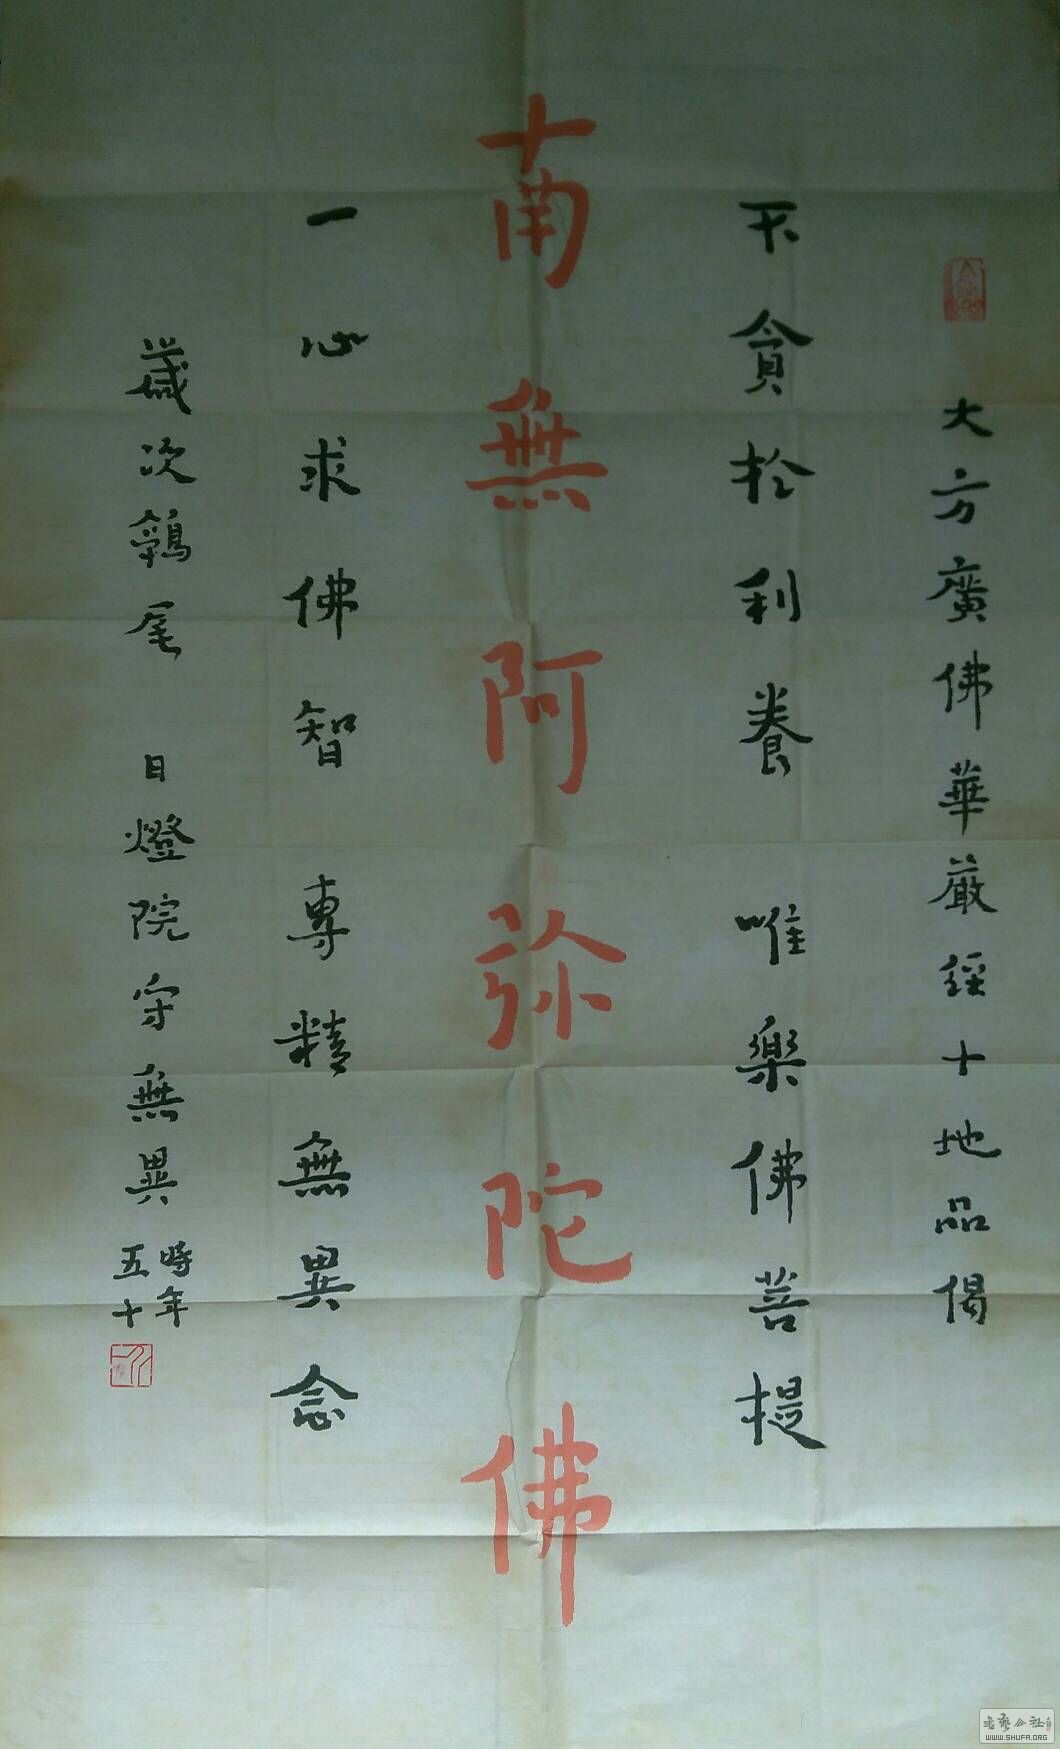 大方廣佛華嚴經十地品偈
不貪於利養 唯樂佛菩提
南無阿弥陀佛
一心求佛智 專精無異念
歲次鶉尾 日燈院守無異 時年五十
WWW.SHUFA.ORG